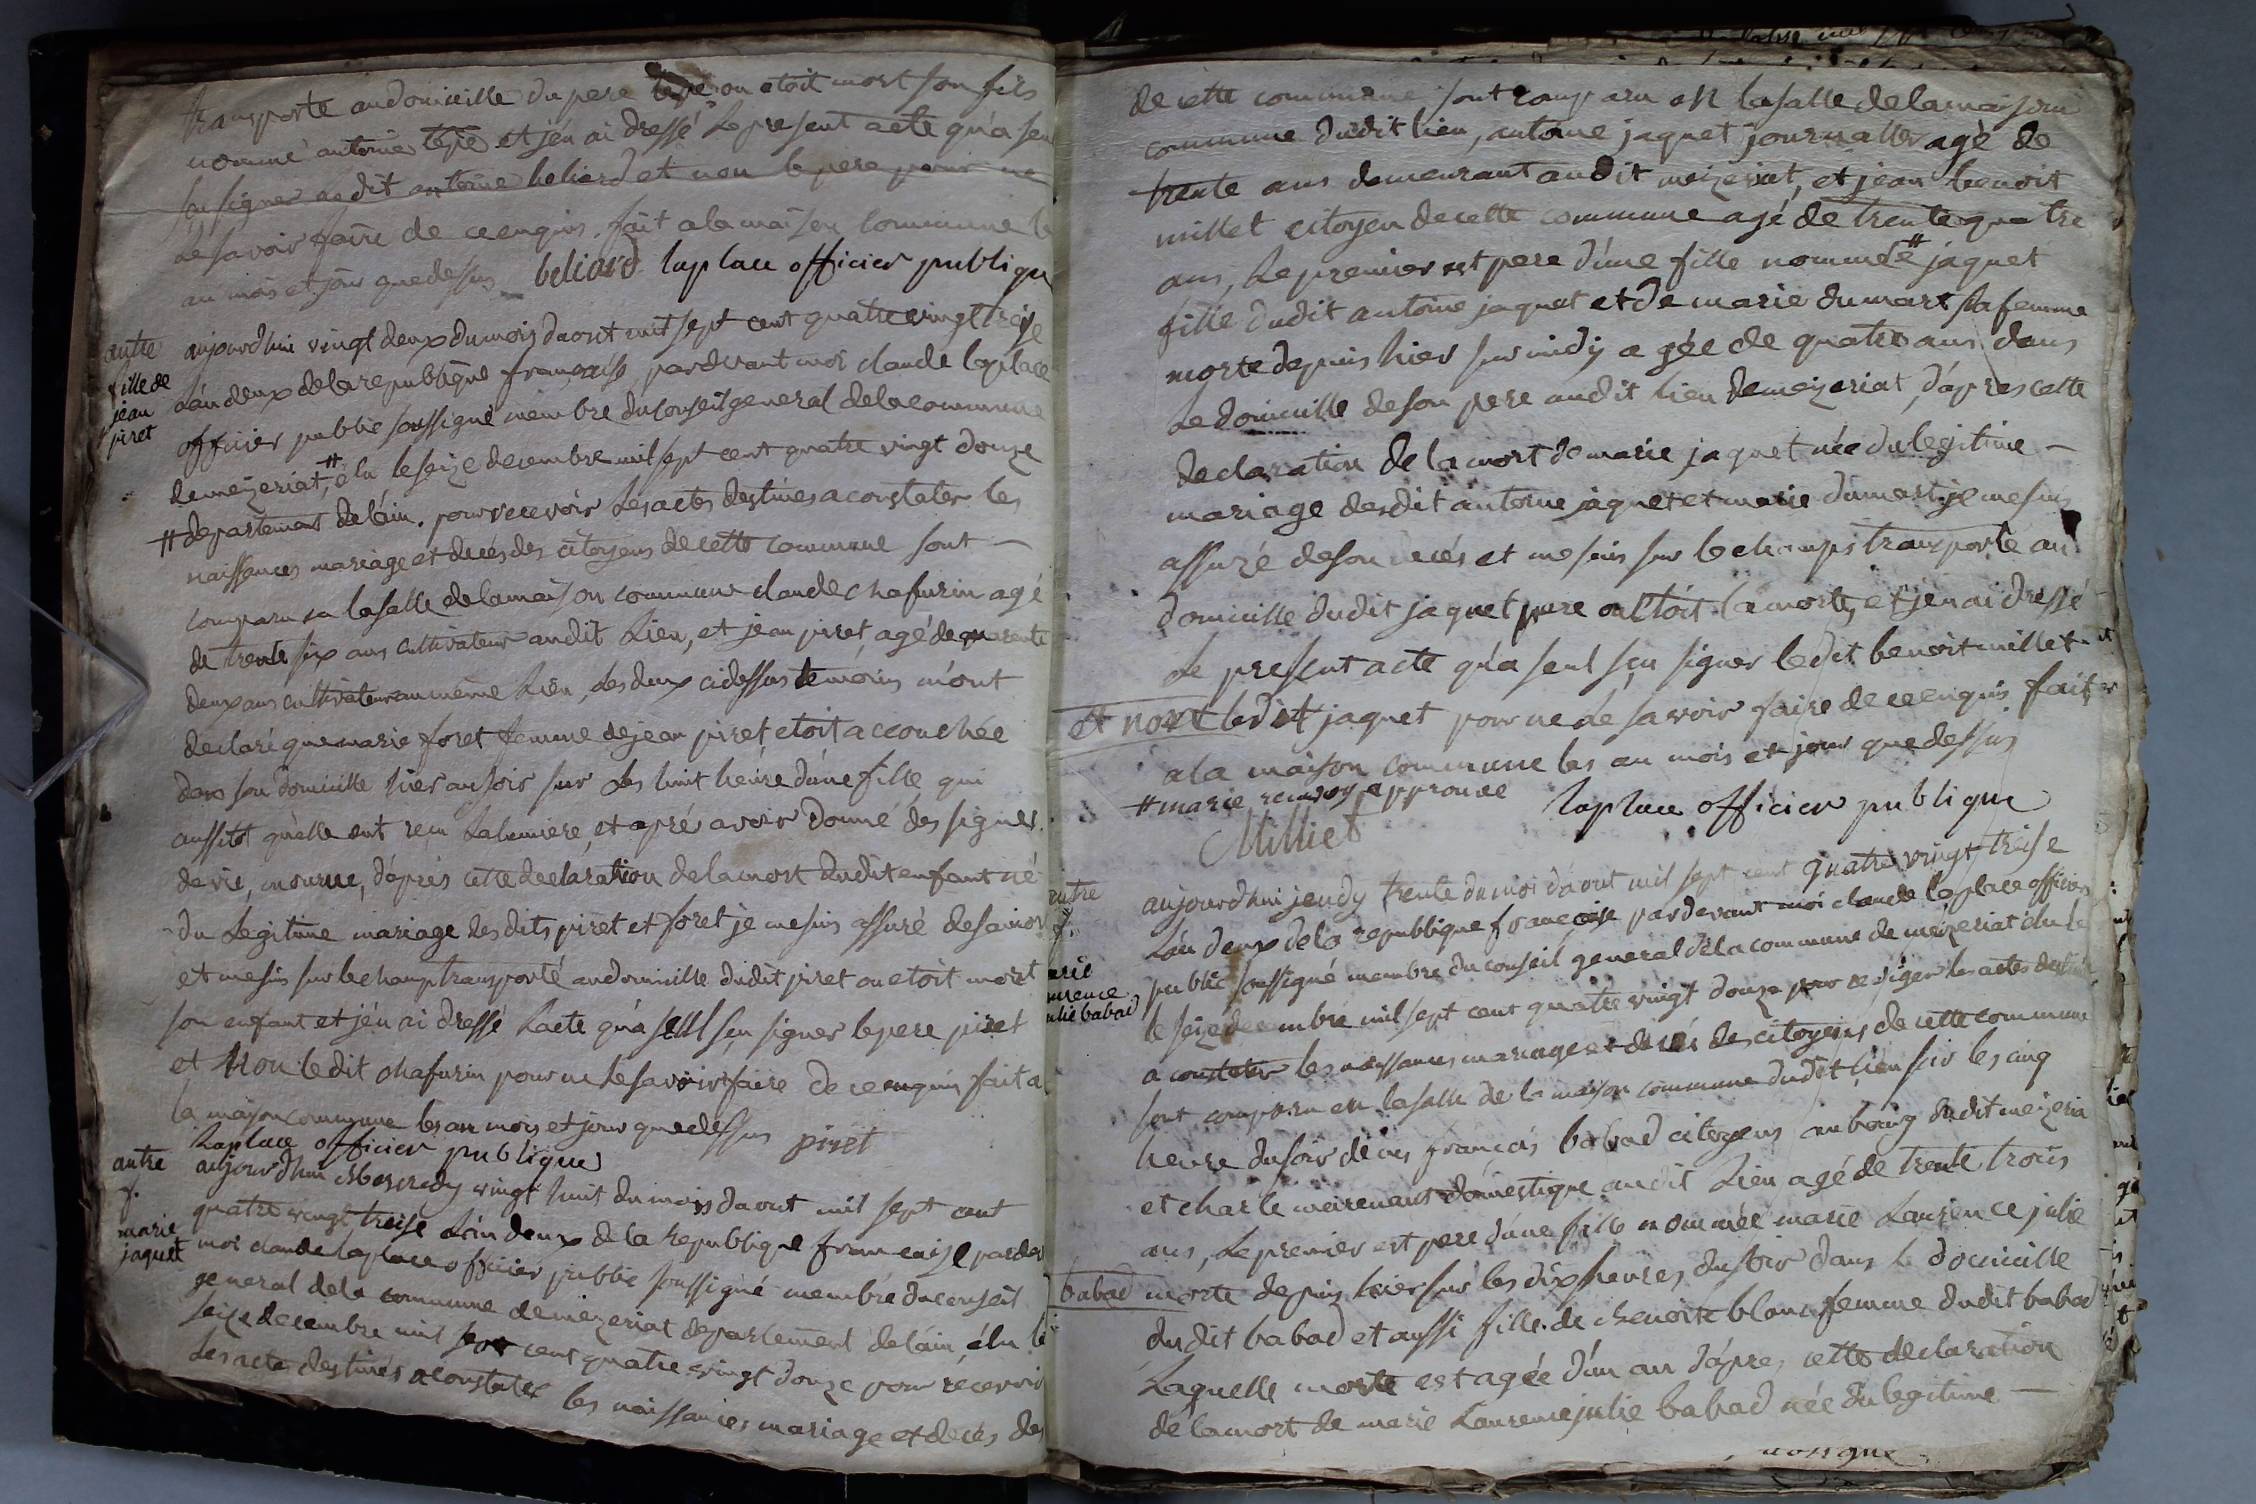 transporté au domicille du pere tepe ou etoit mort son fils
nommé antoine tepe et j'en ai dressé le present acte qu'a seu
sçu signer ledit antoine beliard et non le pere pour ne
le savoir faire de ce enquis. fait a la maison commune le
an mois et jour que dessus beliard laplace officier publique
autre
fille de
jean
piret
aujourdhui vingt deux du mois daout mil sept cent quatre vingt treise
l'an deux de la republique francaise pardevant moi claude laplace
officier public soussigné membre du conseil general de la commune
de meizeriat, # élu le seize decembre mil sept cent quatre vingt douze
# departement de l'ain. pour recevoir les actes destinés a constater les
naissances mariage et decés des citoyens de cette commune sont —
comparu en la salle de la maison commune claude chafurin agé
de trente six ans cultivateur audit lieu, et jean piret, agé de quarente
deux ans cultivateur au même lieu, les deux cidessus temoins m'ont
declaré que marie foret femme de jean piret etoit accouchée
dans son domicille hier au soir sur les huit heure d'une fille qui
aussitot qu'elle eut reçu la lumiere, et aprés avoir donné des signes
de vie, mourue, d'aprés cette declaration de la mort dudit enfant né
du legitime mariage desdits piret et foret je me suis assuré de sa mort
et me suis sur le champ transporté au domicille dudit piret ou etoit mort
son enfant et j'en ai dressé l'acte qu'a seul sçu signer le pere piret
et non ledit chafurin pour ne le savoir faire de ce enquis fait a
la maison commune les an mois et jour que dessus piret
laplace officier publique
autre
f.
marie
jaquet
aujourdhui mercredy vingt huit du mois daout mil sept cent
quatre vingt treise l'an deux de la republique francaise pardev
moi claude laplace officier public soussigné membre du conseil
general de la commune de meizeriat departement de l'ain, élu le
seize decembre mil sept cent quatre vingt douze pour recevoir
les acte destinés a constater les naissances mariage et decés des
de cette commune sont comparu en la salle de la maison
commune dudit lieu, antoine jaquet journallier agé de
trente ans demeurant audit meizeriat, et jean benoit
millet citoyen de cette commune agé de trente quatre
ans, le premier est pere d'une fille nommée # jaquet
fille dudit antoine jaquet et de marie dumart sa femme
morte depuis hier sur midy agée de quatre ans dans
le domicille de son pere audit lieu de meizeriat, d'apres cette
declaration de la mort de marie jaquet née du legitime —
mariage desdit antoine jaquet et marie dumart je me suis
assuré de son decés et me suis sur le champs transporté au
domicille dudit jaquet pere ou etoit la morte, et j'en ai dressé
le present acte qu'a seul sçu signer ledit benoit millet
et non ledit jaquet pour ne le savoir faire de ce enquis fait
a la maison commune les an mois et jour que dessus
# marie renvoy approuvé
Milliet laplace officier publique
autre
f.
marie
laurence
julie babad
aujourdhui jeudy trente du moi daout mil sept cent quatre vingt treise
l'an deux de la republique francaise pardevant moi claude laplace officier
public soussigné membre du conseil general de la commune de meizeriat élu le
le seize decembre mil sept cent quatre vingt douze pour rediger les actes destinés
a constater les naissances mariage et decés des citoyens de cette commune
sont comparu en la salle de la maison commune dudit lieu sur les cinq
heure du soir denis françois babad citoyens au bourg dudit meizeria
et charle meirenant domestique audit lieu agé de trente trois
ans, le premier est pere d'une fille nommée marie laurence julie
babad morte depuis hier sur les dix heures du soir dans le domicille
dudit babad et aussi fille de benoite blanc femme dudit babad
laquelle morte est agée d'un an d'apres cette declaration
de la mort de marie laurence julie babad née du legitime —